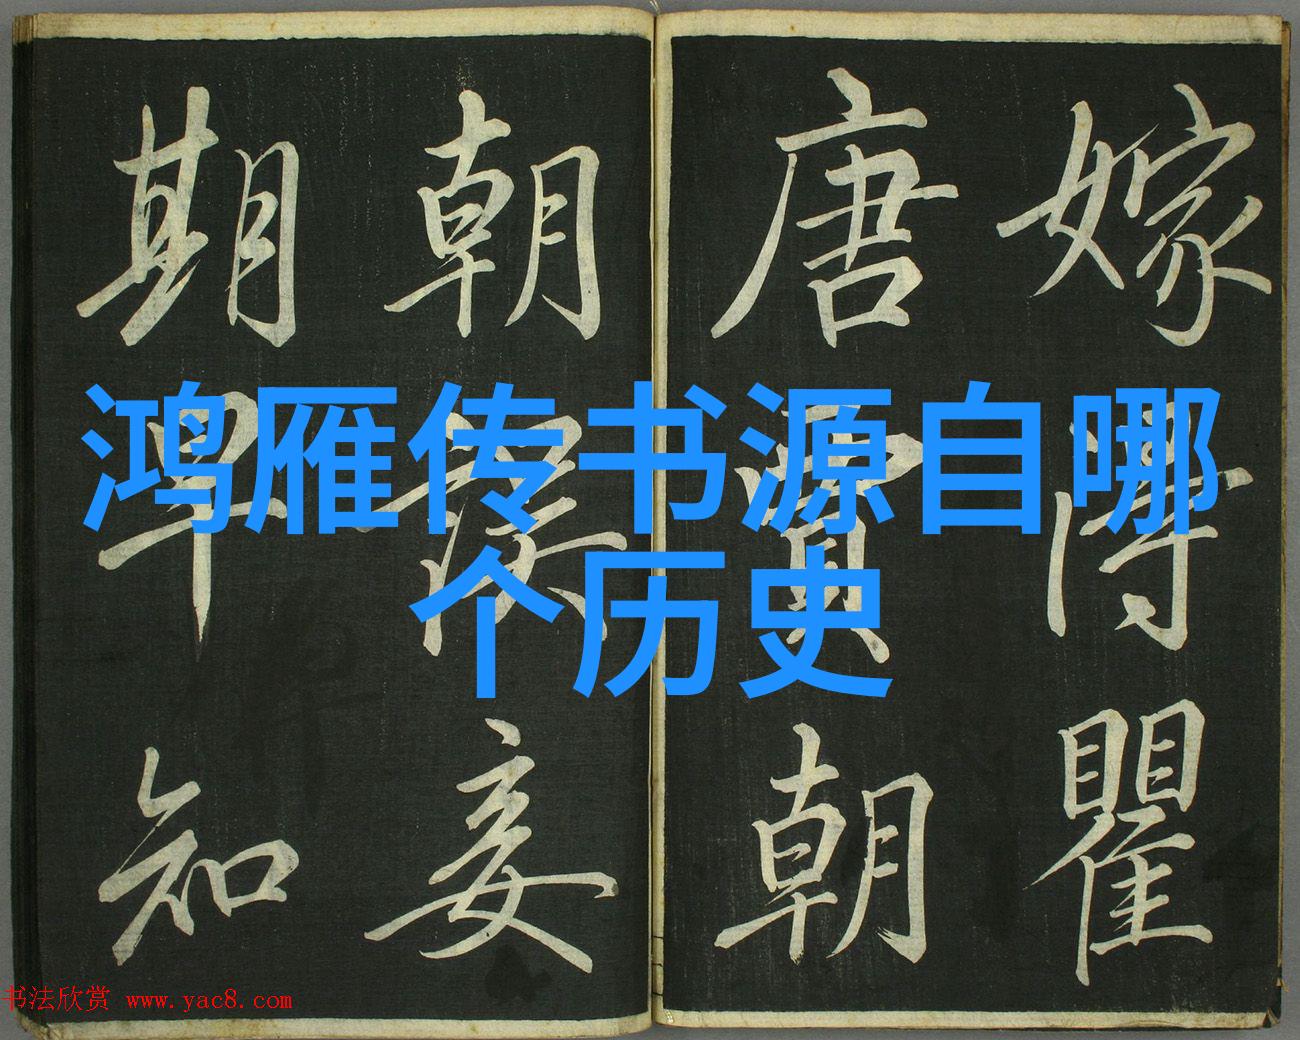 鸿雁传书源自哪
个历史
嫁得瞿
唐賈朝
朝誤妾
期早知
书法欣赏 www.yac8.com